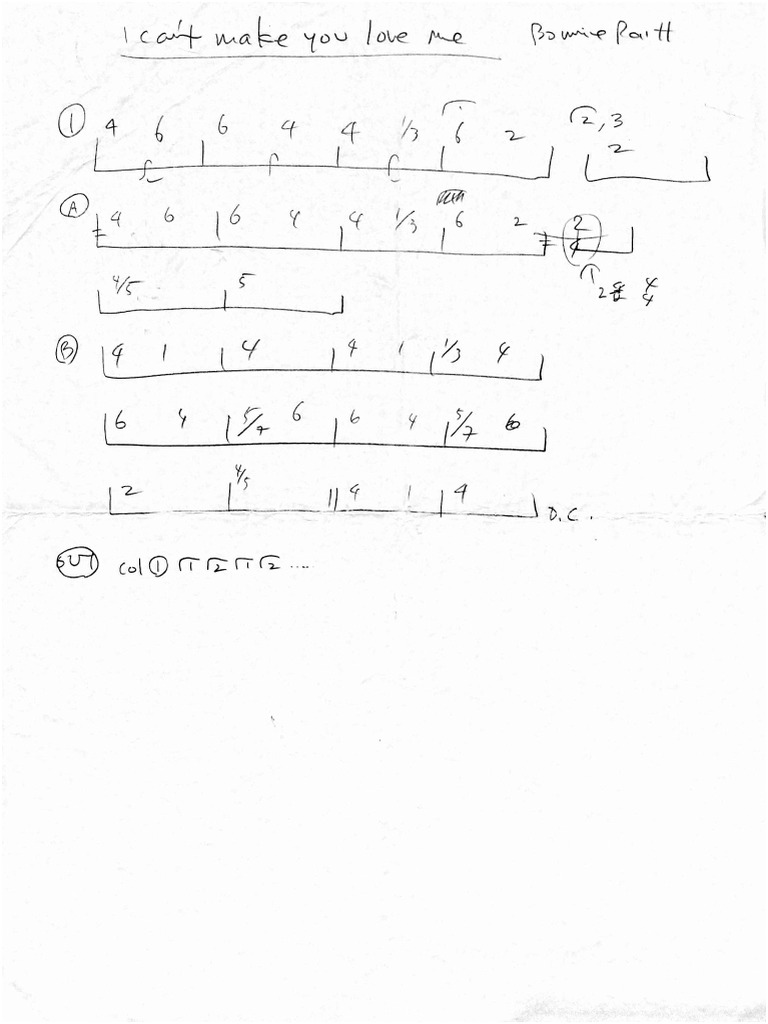 I can't make you love me Bonnie Raitt
① 4 6 6 4 4 1/3 6 2 2,3
2
Ⓐ 4 6 6 4 4 1/3 6 2 2
1
2 4
4
4/5 5
Ⓑ 4 1 4 4 1 1/3 4
6 4 5/7 6 6 4 5/7 6
2 4/5 4 1 4 D.C.
OUT col ① 1 2 1 2 ....